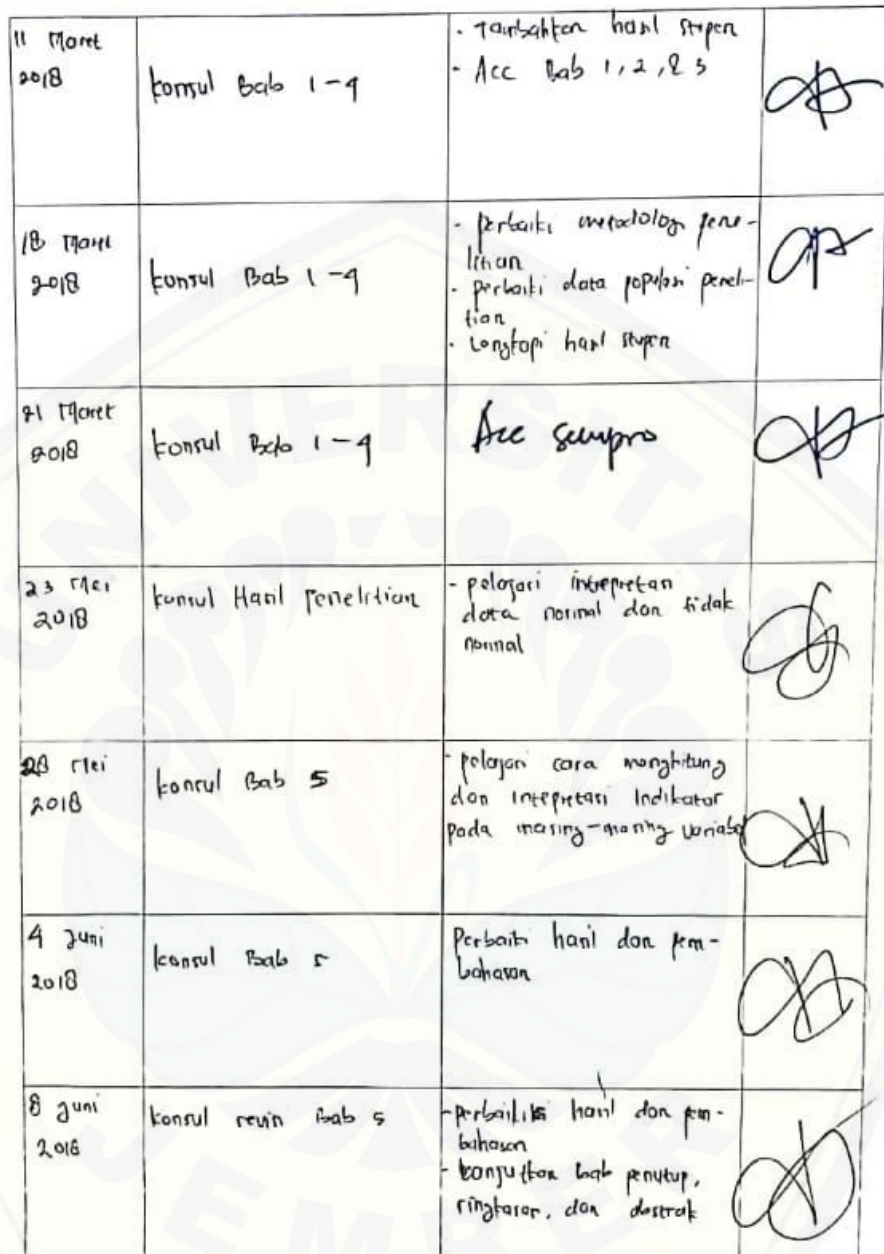 11 Maret
2018
konsul Bab 1-4
- Tambahkan hasil stupen
- Acc Bab 1, 2, & 3
18 Maret
2018
konsul Bab 1-4
- perbaiki metodologi pene-
litian
- perbaiki data populasi peneli-
tian
- Lengkapi hasil stupen
21 Maret
2018
konsul Bab 1-4
Acc Sempro
23 Mei
2018
konsul Hasil penelitian
- pelajari intrepretan
data normal dan tidak
normal
28 Mei
2018
konsul Bab 5
- pelajari cara menghitung
dan intepretasi Indikator
pada masing-masing variabel
4 Juni
2018
konsul Bab 5
Perbaiki hasil dan pem-
bahasan
8 Juni
2018
konsul revisi Bab 5
- perbaikiki hasil dan pem-
bahasan
- lanjutkan bab penutup,
ringkasan, dan abstrak
UNIVERSITAS
JEMBER